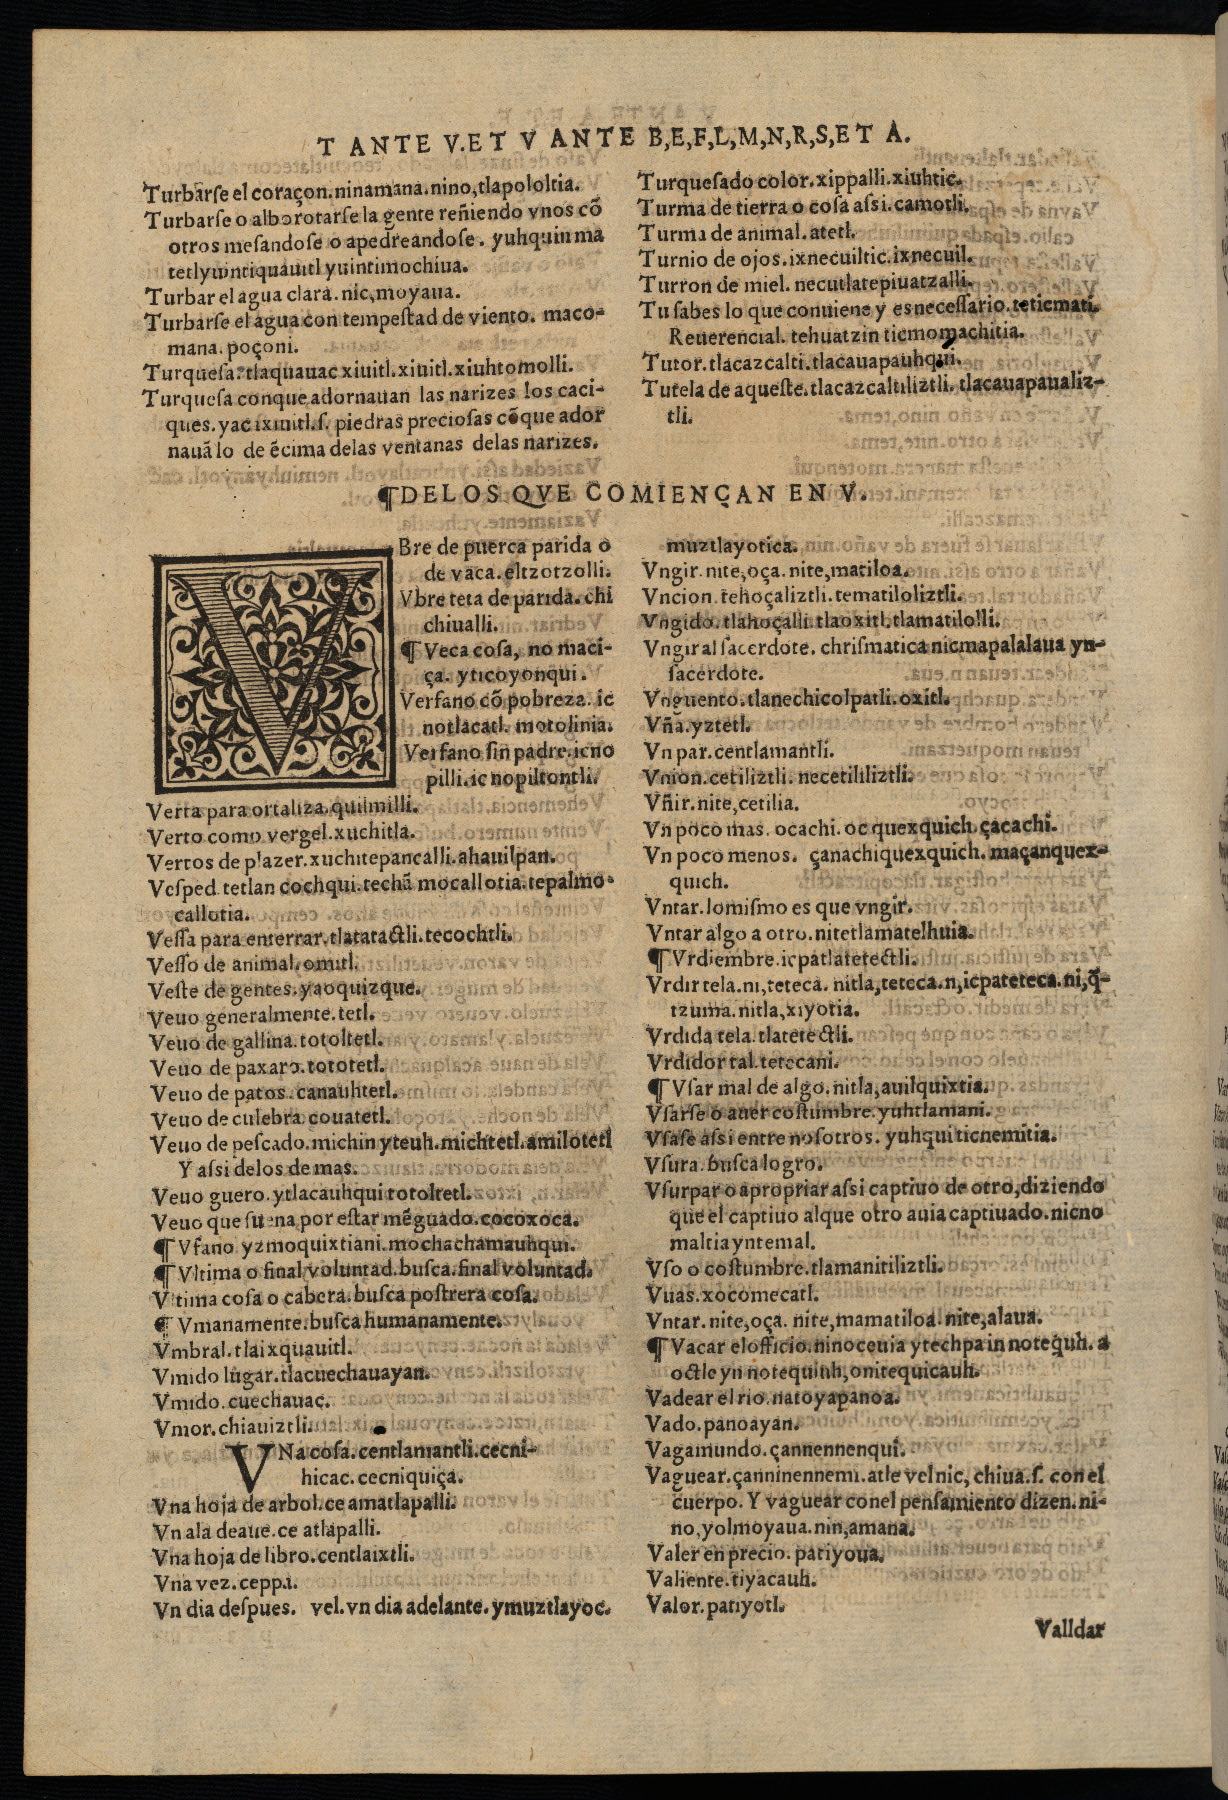 T ANTE V.ET V ANTE B,E,F,L,M,N,R,S,ET A.
Turbarſe el coraçon.ninamana.nino,tlapololtia.
Turbarſe o alborotarſe la gente reñiendo vnos cõ
otros meſandoſe o apedreandoſe. yuhquin ma
tetlyuintiquauitl yuintimochiua.
Turbar el agua clara. nic,moyaua.
Turbarſe el agua con tempeſtad de viento. maco-
mana. poçoni.
Turqueſa. tlaquauac xiuitl.xiuitl.xiuhtomolli.
Turqueſa conque adornauan las narizes los caci-
ques.yac ixiuitl.ſ. piedras precioſas cõque ador
nauã lo de ẽcima delas ventanas delas narizes.
Turqueſado color. xippalli.xiuhtic.
Turma de tierra o coſa aſsi.camotli.
Turma de animal.atetl.
Turnio de ojos.ixnecuiltic.ixnecuil.
Turron de miel. necutlatepiuatzalli.
Tu ſabes lo que conuiene y es neceſſario.teticmati.
Reuerencial. tehuatzin ticmomachitia.
Tutor.tlacazcalti.tlacauapauhqui.
Tutela de aqueſte.tlacazcaltiliztli. tlacauapaualiz-
tli.
¶DELOS QVE COMIENÇAN EN V.
VBre de puerca parida o
de vaca.eltzotzolli.
Vbre teta de parida.chi
chiualli.
¶ Veca coſa, no maci-
ça. yticoyonqui.
Verfano cõ pobreza. ic
notlacatl. motolinia.
Verfano ſin padre.icno
pilli.ic nopiltontli.
Verta para ortaliza.quilmilli.
Verto como vergel.xuchitla.
Vertos de plazer.xuchitepancalli.ahauilpan.
Veſped.tetlan cochqui.techã mocallotia.tepalmo-
callotia.
Veſſa para enterrar.tlatatactli.tecochtli.
Veſſo de animal.omitl.
Veſte de gentes.yaoquizque.
Veuo generalmente.tetl.
Veuo de gallina.totoltetl.
Veuo de paxaro.tototetl.
Veuo de patos.canauhtetl.
Veuo de culebra.couatetl.
Veuo de peſcado.michin yteuh.michtetl.amilotetl
Y aſsi delos de mas.
Veuo guero.ytlacauhqui totoltetl.
Veuo que ſuena por eſtar mẽguado.cocoxoca.
¶ Vfano yzmoquixtiani.mochachamauhqui.
¶ Vltima o final voluntad.buſca.final voluntad.
Vltima coſa o cabera.buſca poſtrera coſa.
¶ Vmanamente.buſca humanamente.
Vmbral.tlaixquauitl.
Vmido lugar.tlacuechauayan.
Vmido.cuechauac.
Vmor.chiauiztli.
VNa coſa.centlamantli.cecni-
hicac.cecniquiça.
Vna hoja de arbol.ce amatlapalli.
Vn ala deaue.ce atlapalli.
Vna hoja de libro.centlaixtli.
Vna vez.ceppa.
Vn dia deſpues. vel.vn dia adelante.ymuztlayoc.
muztlayotica.
Vngir.nite,oça.nite,matiloa.
Vncion.tehoçaliztli.tematiloliztli.
Vngido.tlahoçalli.tlaoxitl.tlamatilolli.
Vngir al ſacerdote. chriſmatica nicmapalalaua yn-
ſacerdote.
Vnguento.tlanechicolpatli.oxitl.
Vña.yztetl.
Vn par.centlamantli.
Vnion.cetiliztli.necetililiztli.
Vñir.nite,cetilia.
Vn poco mas. ocachi. oc quexquich.çacachi.
Vn poco menos. çanachiquexquich.maçanquex-
quich.
Vntar.lomiſmo es que vngir.
Vntar algo a otro.nitetlamatelhuia.
¶ Vrdiembre.icpatlatetectli.
Vrdir tela.ni,teteca. nitla,teteca.n,icpateteca.ni,q̃-
tzuma.nitla,xiyotia.
Vrdida tela.tlatetectli.
Vrdidor tal.tetecani.
¶ Vſar mal de algo.nitla,auilquixtia.
Vſarſe o auer coſtumbre.yuhtlamani.
Vſaſe aſsi entre noſotros. yuhqui ticnemitia.
Vſura.buſca logro.
Vſurpar o apropriar aſsi captiuo de otro,diziendo
que el captiuo alque otro auia captiuado.nicno
maltia yntemal.
Vſo o coſtumbre.tlamanitiliztli.
Vuas.xocomecatl.
Vntar.nite,oça. nite,mamatiloa.nite,alaua.
¶ Vacar el officio.ninoceuia ytechpa in notequh.a
octle yn notequiuh,onitequicauh.
Vadear el rio.natoyapanoa.
Vado.panoayan.
Vagamundo.çannennenqui.
Vaguear.çanninennemi.atle velnic, chiua.ſ. con el
cuerpo. Y vaguear conel penſamiento dizen.ni-
no,yolmoyaua.nin,amana.
Valer en precio. patiyoua.
Valiente.tiyacauh.
Valor.patiyotl.
Valldar